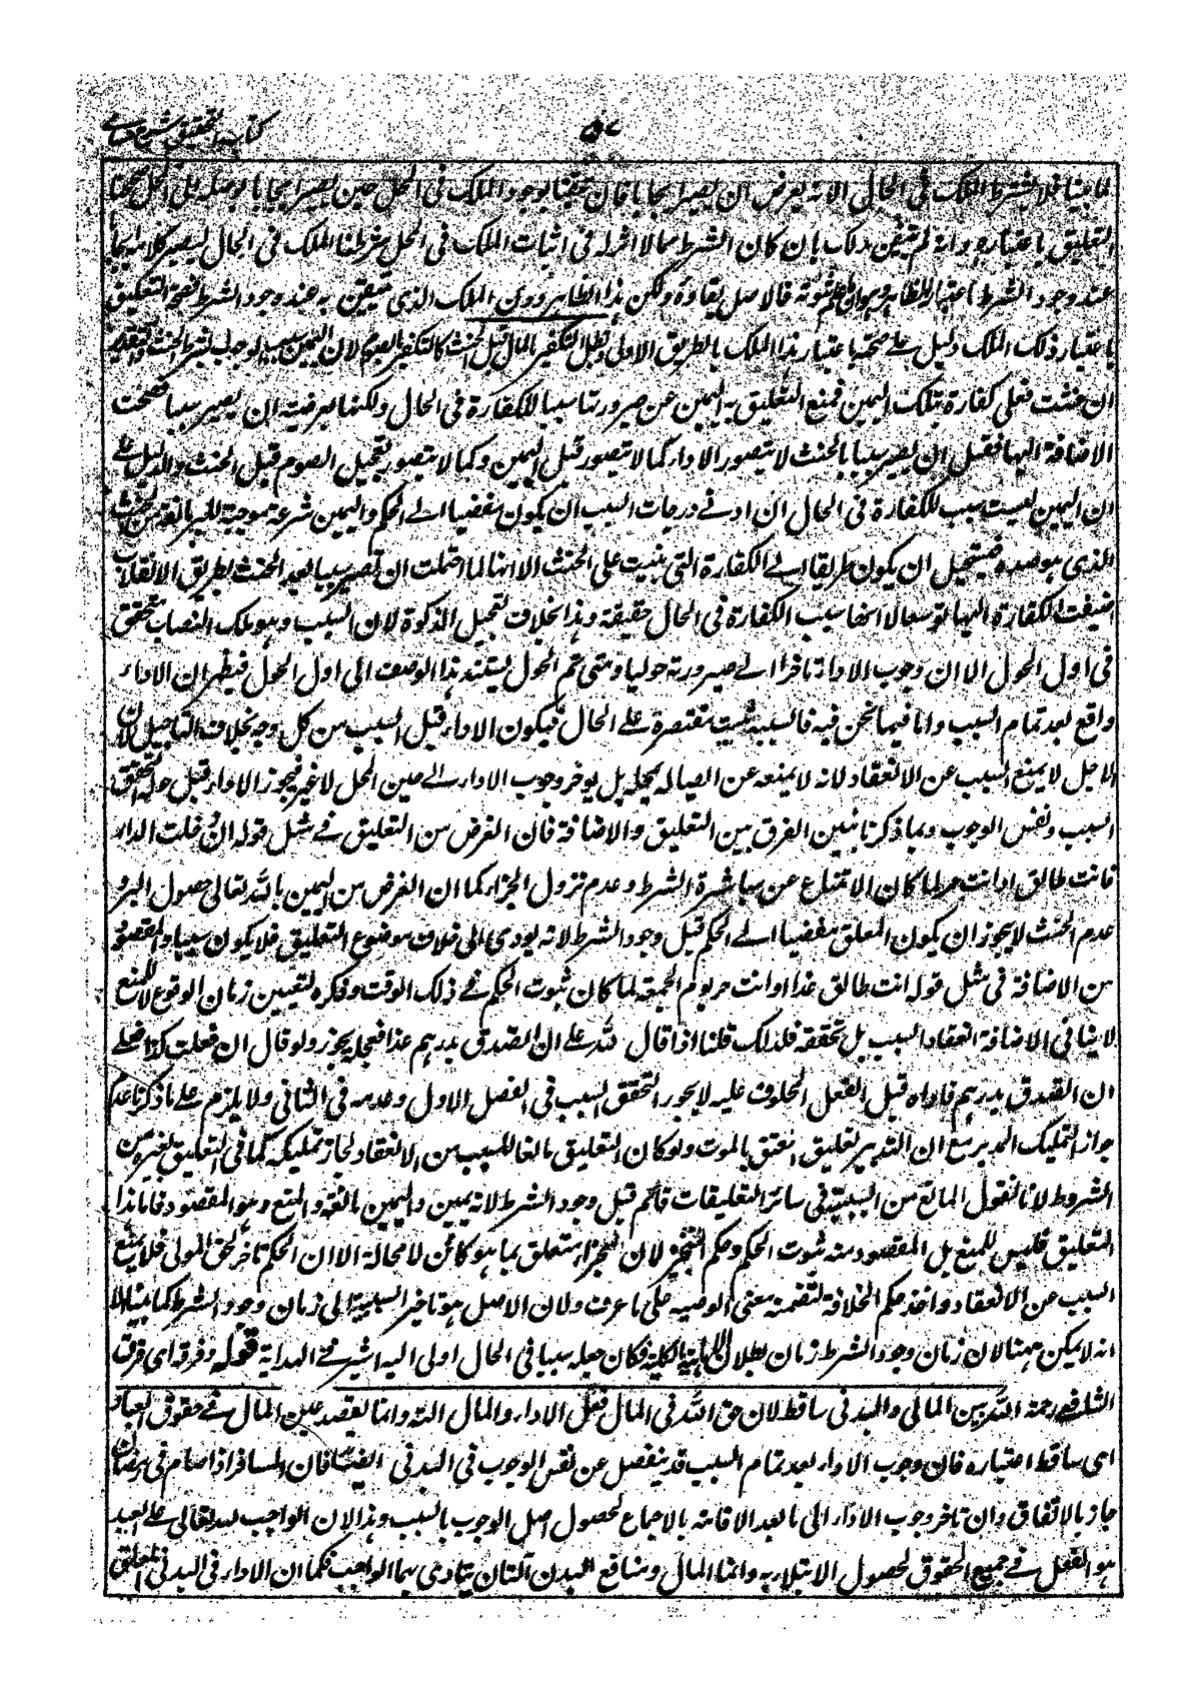 كتاب التحقيق شرح حسامى
لما بينا فلا يشترط الملك فى الحال الا انه يعرض ان يصير ايجابا فان تيقنا بوجود الملك فى المحل حين يصير ايجابا بوصله الى المحل صححنا
التعليق باعتباره وان لم نتيقن بذلك بان كان الشرط مما لا اثر له فى اثبات الملك فى المحل شرطنا الملك فى الحال ليصير كلامه ايجابا
عند وجود الشرط باعتبار الظاهر وهو ان ما علم ثبوته فالاصل بقاؤه ولكن هذا الظاهر دون الملك الذى يتيقن به عند وجود الشرط فصحة التعليق
باعتبار ذلك الملك دليل على صحته باعتبار هذا الملك بالطريق الاولى وبطل التكفير بالمال قبل الحنث كالتكفير بالصوم لان اليمين سبب لوجوب بشرط الحنث
ان حنثت فعلى كفارة بتلك اليمين فمنع التعليق به اليمين عن صيرورتها سببا للكفارة فى الحال ولكنها بعرضية ان يصير سببا فصحت
الاضافة اليها فقبل ان يصير سببا بالحنث لا يتصور الاداء كما لا يتصور قبل اليمين وكما لا يتصور تعجيل الصوم قبل الحنث والدليل على
ان اليمين ليست بسبب للكفارة فى الحال ان ادنى درجات السبب ان يكون مفضيا الى الحكم واليمين شرعت موجبة للبر مانعة من الحنث
الذى هو ضده فيستحيل ان يكون طريقا الى الكفارة التى بنيت على الحنث الا انها لما احتملت ان تصير سببا بعد الحنث بطريق الانقلاب
اضيفت الكفارة اليها توسعا لا انها سبب الكفارة فى الحال حقيقة وهذا بخلاف تعجيل الزكوة لان السبب وهو ملك النصاب تحقق
فى اول الحول الا ان وجوب الاداء تاخر الى صيرورته حوليا ومتى تم الحول يستند هذا الوصف الى اول الحول فيظهر ان الاداء
واقع بعد تمام السبب واما فيما نحن فيه فالسببية ثبتت مقتصرة على الحال فيكون الاداء قبل السبب من كل وجه بخلاف التاجيل لان
الاجل لا يمنع السبب عن الانعقاد لانه لا يمنعه عن اتصاله بمحله بل يوخر وجوب الاداء الى حين المحل لا غير فيجوز الاداء قبل حله لتحقق
السبب ونفس الوجوب وبما ذكرنا تبين الفرق بين التعليق والاضافة فان الغرض من التعليق فى مثل قوله ان دخلت الدار
فانت طالق او انت حر لما كان الامتناع عن مباشرة الشرط وعدم نزول الجزاء كما ان الغرض من اليمين بالله تعالى حصول البر و
عدم الحنث لا يجوز ان يكون المعلق مفضيا الى الحكم قبل وجود الشرط لانه يودى الى خلاف موضوع التعليق فلا يكون سببا والمقصود
من الاضافة فى مثل قوله انت طالق غدا او انت حر يوم الجمعة لما كان ثبوت الحكم فى ذلك الوقت وذكره لتعيين زمان الوقوع لا للمنع
لا ينافى الاضافة انعقاد السبب بل تحققه فلذلك قلنا اذا قال لله على ان اتصدق بدرهم غدا فعجله يجوز ولو قال ان فعلت كذا فعلى
ان اتصدق بدرهم فاداه قبل الفعل المحلوف عليه لا يجوز لتحقق السبب فى الفصل الاول وعدمه فى الثانى ولا يلزم على ما ذكرنا عدم
جواز تمليك المدبر مع ان التدبير تعليق العتق بالموت ولو كان التعليق مانعا للسبب من الانعقاد لجاز تمليكه كما فى التعليق بغيره من
الشروط لانا نقول المانع من السببية فى سائر التعليقات قائم قبل وجود الشرط لانه يمين واليمين مانعة والمنع وهو المقصود فاما هذا
التعليق فليس للمنع بل المقصود منه ثبوت الحكم وحكم التنجيز لان الجزاء متعلق بما هو كائن لا محالة الا ان الحكم تاخر لحق المولى فلا يمنع
السبب عن الانعقاد واخذ حكم الخلافة لتضمنه معنى الوصيه على ما عرف ولان الاصل هو تاخير السببية الى زمان وجود الشرط كما بينا الا
انه لا يمكن ههنا لان زمان وجود الشرط زمان بطلان الاهلية فكان جعله سببا فى الحال اولى اليه اشير فى الهداية قوله وفرقه اى فرق
الشافعى رحمه الله بين المالى والبدنى ساقط لان حق الله فى المال فعل الاداء والمال الته وانما يقصد عين المال فى حقوق العباد
اى ساقط اعتباره فان وجوب الاداء بعد تمام السبب قد ينفصل عن نفس الوجوب فى البدنى ايضا فان المسافر اذا صام فى رمضان
جاز بالاتفاق وان تاخر وجوب الاداء الى ما بعد الاقامة بالاجماع لحصول اصل الوجوب بالسبب وهذا لان الواجب لله تعالى على العبد
هو الفعل فى جميع الحقوق لحصول الابتلاء به وانما المال ومنافع البدن آلتان يتادى بهما الواجب فكما ان الاداء فى البدنى